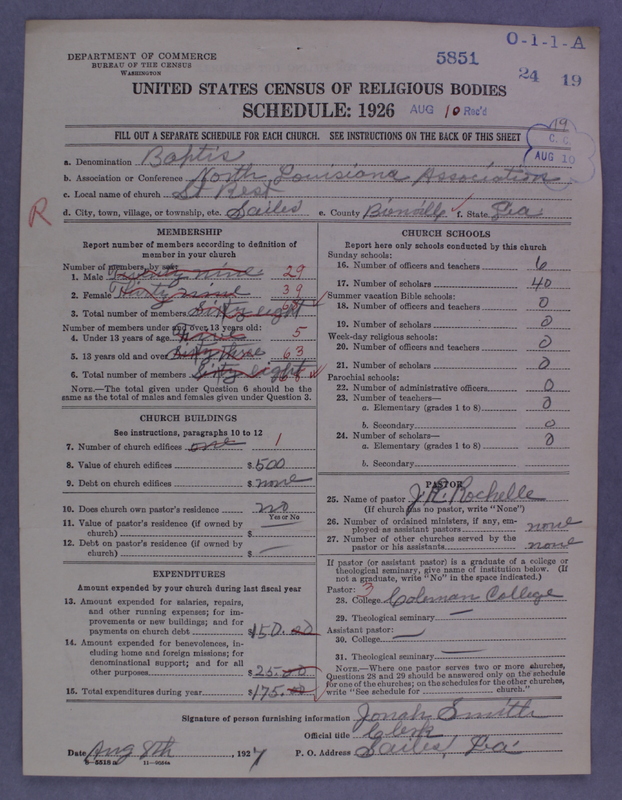 O-1-1-A
DEPARTMENT OF COMMERCE
BUREAU OF THE CENSUS
WASHINGTON
5851
24 19
UNITED STATES CENSUS OF RELIGIOUS BODIES
SCHEDULE: 1926
AUG 10 Rec'd
19
FILL OUT A SEPARATE SCHEDULE FOR EACH CHURCH. SEE INSTRUCTIONS ON THE BACK OF THIS SHEET
C. C.
AUG 10
a. Denomination Baptis
b. Association or Conference North Louisiana Association
c. Local name of church St Rest
R
d. City, town, village, or township, etc. Sailes e. County Bienville f. State La
MEMBERSHIP
Report number of members according to definition of
member in your church
Number of members, by sex:
1. Male Twenty nine 29
2. Female Thirty nine 39
3. Total number of members Sixty eight 68
Number of members under and over 13 years old:
4. Under 13 years of age 5
5. 13 years old and over Sixty three 63
6. Total number of members Sixty eight 68
NOTE.—The total given under Question 6 should be the
same as the total of males and females given under Question 3.
CHURCH BUILDINGS
See instructions, paragraphs 10 to 12
7. Number of church edifices one 1
8. Value of church edifices $500
9. Debt on church edifices $ none
10. Does church own pastor's residence no
Yes or No
11. Value of pastor's residence (if owned by
church) $ —
12. Debt on pastor's residence (if owned by
church) $ —
EXPENDITURES
Amount expended by your church during last fiscal year
13. Amount expended for salaries, repairs,
and other running expenses; for im-
provements or new buildings; and for
payments on church debt $150.00
14. Amount expended for benevolences, in-
cluding home and foreign missions; for
denominational support; and for all
other purposes $25.00
15. Total expenditures during year $175.00
CHURCH SCHOOLS
Report here only schools conducted by this church
Sunday schools:
16. Number of officers and teachers 6
17. Number of scholars 40
Summer vacation Bible schools:
18. Number of officers and teachers 0
19. Number of scholars 0
Week-day religious schools:
20. Number of officers and teachers 0
21. Number of scholars 0
Parochial schools:
22. Number of administrative officers 0
23. Number of teachers—
a. Elementary (grades 1 to 8) 0
b. Secondary 0
24. Number of scholars—
a. Elementary (grades 1 to 8) 0
b. Secondary
PASTOR
25. Name of pastor J. R. Rochelle
(If church has no pastor, write "None")
26. Number of ordained ministers, if any, em-
ployed as assistant pastors none
27. Number of other churches served by the
pastor or his assistants none
If pastor (or assistant pastor) is a graduate of a college or
theological seminary, give name of institution below. (If
not a graduate, write "No" in the space indicated.)
Pastor: 3
28. College Coleman College
29. Theological seminary —
Assistant pastor:
30. College —
31. Theological seminary —
NOTE.—Where one pastor serves two or more churches,
Questions 28 and 29 should be answered only on the schedule
for one of the churches; on the schedules for the other churches,
write "See schedule for church."
Signature of person furnishing information Jonah Smith
Official title Clerk
Date Aug 8th, 1927 P. O. Address Sailes, La